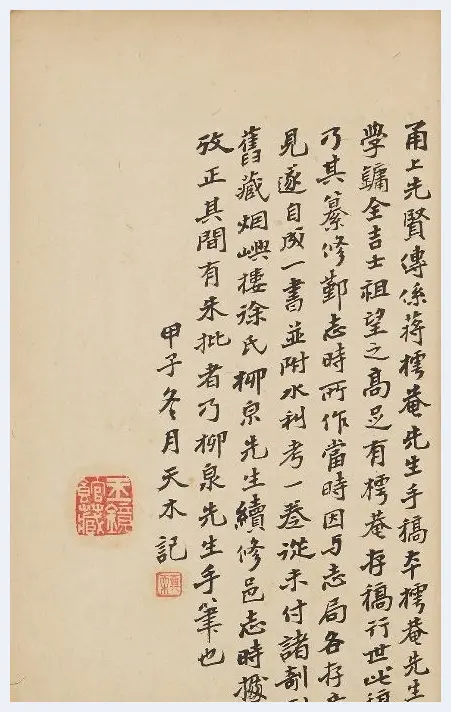 甬上先賢傳係蔣樗菴先生手稿本樗菴先生
學鏞全吉士祖望之高足有樗菴存稿行世此稿
乃其纂修鄞志時所作當時因与志局各存意
見遂自成一書並附水利考一卷從未付諸剞
舊藏烟嶼樓徐氏柳泉先生續修邑志時據
攷正其間有朱批者乃柳泉先生手筆也
甲子冬月天木記
館藏